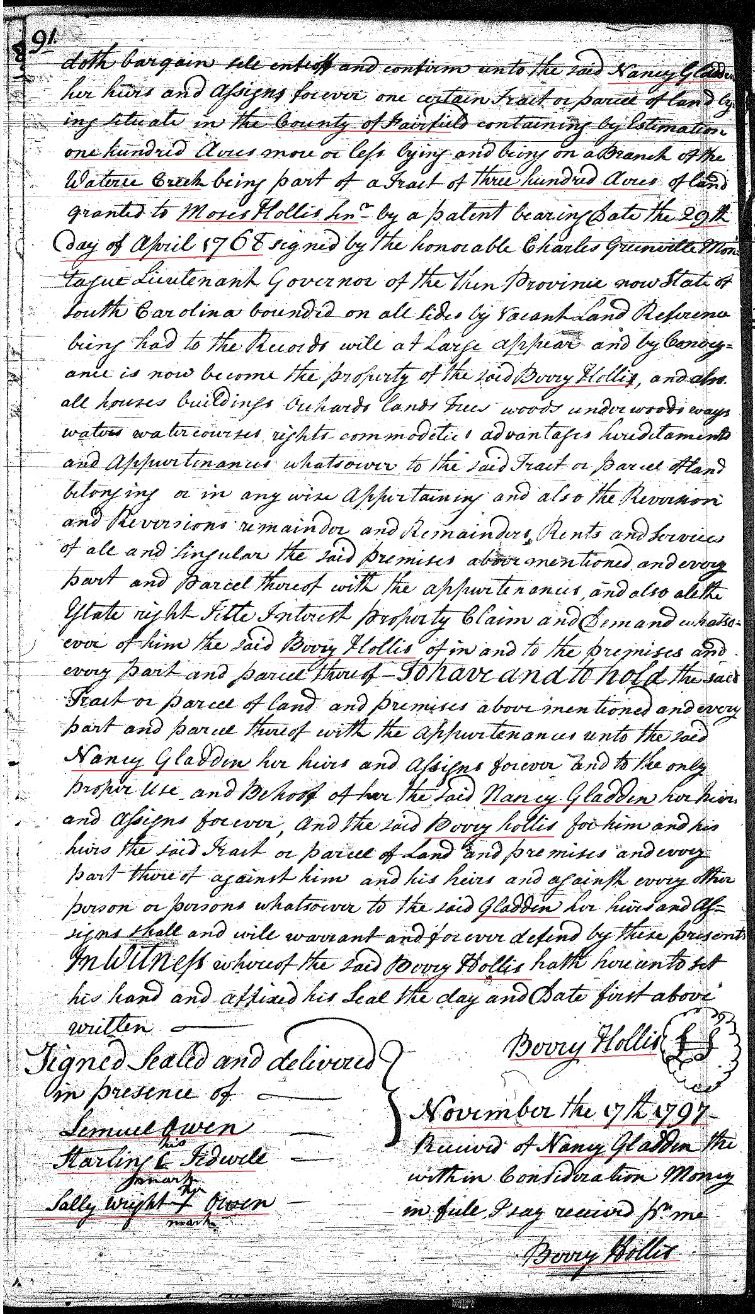 91
doth bargain sele enfeoff and confirm unto the said Nancy Gladden
her heirs and assigns forever one certain Tract or parcel of land ly
ing situate in the County of Fairfield containing by Estimation
one hundred Acres more or less lying and being on a Branch of the
Wateree Creek being part of a Tract of three hundred Acres of land
granted to Moses Hollis Snr by a patent bearing Date the 29th
day of April 1768 signed by the honorable Charles Greenville Mon
tague Lieutenant Governor of the then Province now State of
South Carolina bounded on all sides by Vacant Land Reference
being had to the Records will at Large appear and by Convey=
ance is now become the property of the said Berry Hollis, and also
all houses buildings orchards lands Trees woods underwoods ways
waters watercourses rights commodeties advantages hereditaments
and Appurtenances whatsoever to the said Tract or parcel of land
belonging or in any wise Appertaining and also the Reversion
and Reversions remainder and Remainders, Rents and Services
of all and singular the said premises above mentioned and every
part and Parcel thereof with the appurtenances, and also all the
Estate right Title Interest property Claim and Demand whatso=
ever of him the said Berry Hollis of in and to the premises and
every part and parcel thereof - To have and to hold the said
Tract or parcel of land and premises above mentioned and every
part and parcel thereof with the appurtenances unto the said
Nancy Gladden her heirs and assigns forever and to the only
proper Use and Behoof of her the said Nancy Gladden her heirs
and assigns forever, And the said Berry hollis for him and his
heirs the said Tract or parcel of Land and premises and every
part thereof against him and his heirs and against every other
person or persons whatsoever to the said Gladden her heirs and As=
signs shall and will warrant and forever defend by these presents
In Witness whereof the said Berry Hollis hath hereunto set
his hand and affixed his Seal the day and Date first above
written
Berry Hollis LS
Signed Sealed and delivered
in presence of
Lemuel Owen
his
Starling Tidwell
mark
her
Sally Wright + Owen
mark
November the 17th 1797
Received of Nancy Gladden the
within Consideration Money
in fule, I say received pr me
Berry Hollis